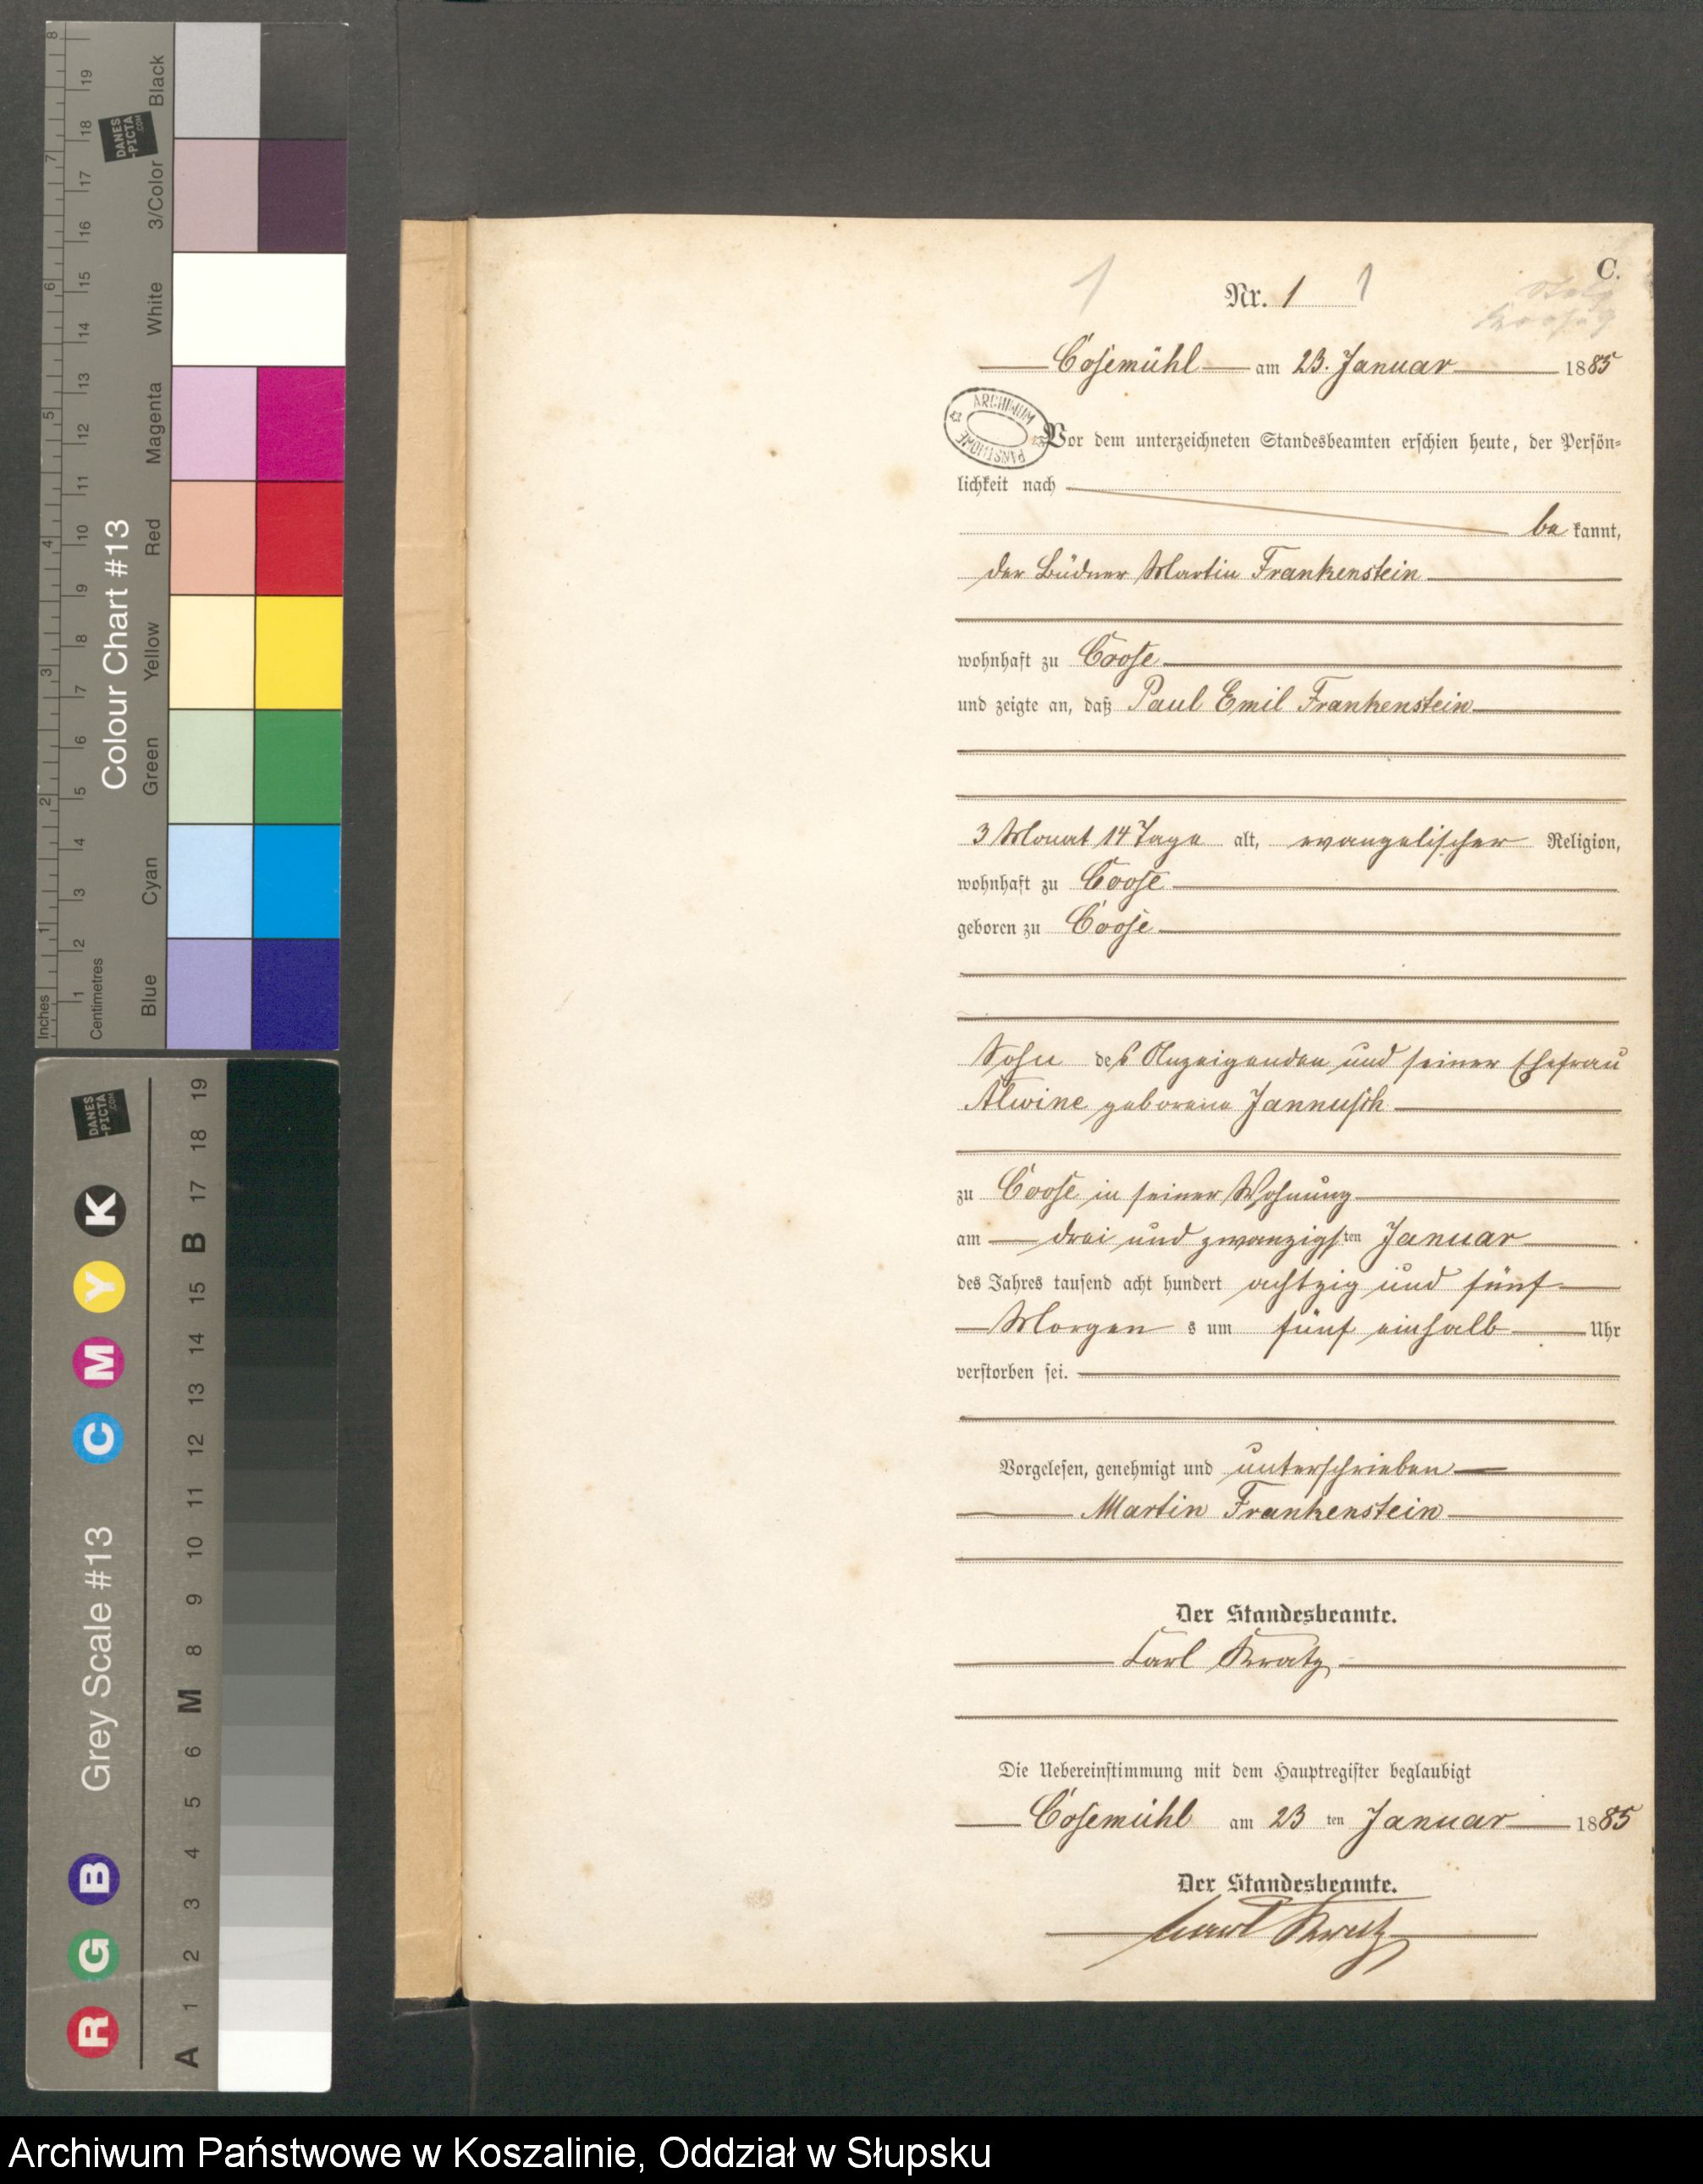 C.
Nr. 1 1
1
Cosemühl am 23. Januar 1885
ARCHIWUM PAŃSTWOWE
Vor dem unterzeichneten Standesbeamten erschien heute, der Persön-
lichkeit nach
be kannt,
der Büdner Martin Frankenstein
wohnhaft zu Coose
und zeigte an, daß Paul Emil Frankenstein
3 Monat 14 Tage alt, evangelischer Religion,
wohnhaft zu Coose
geboren zu Coose
Sohn des Anzeigenden und seiner Ehefrau
Alwine geborene Jannusch
zu Coose in seiner Wohnung
am drei und zwanzigsten Januar
des Jahres tausend acht hundert achtzig und fünf
Morgen s um fünf einhalb Uhr
verstorben sei.
Vorgelesen, genehmigt und unterschrieben
Martin Frankenstein
Der Standesbeamte.
Carl Kratz
Die Uebereinstimmung mit dem Hauptregister beglaubigt
Cosemühl am 23 ten Januar 1885
Der Standesbeamte.
Carl Kratz
Colour Chart #13
Inches
Centimetres
1 2 3 4 5 6 7 8
1 2 3 4 5 6 7 8 9 10 11 12 13 14 15 16 17 18 19
Blue Cyan Green Yellow Red Magenta White 3/Color Black
DANES
-PICTA
.COM
Grey Scale #13
R G B C M Y K
A 1 2 3 4 5 6 M 8 9 10 11 12 13 14 15 B 17 18 19
DANES
-PICTA
.COM
Archiwum Państwowe w Koszalinie, Oddział w Słupsku